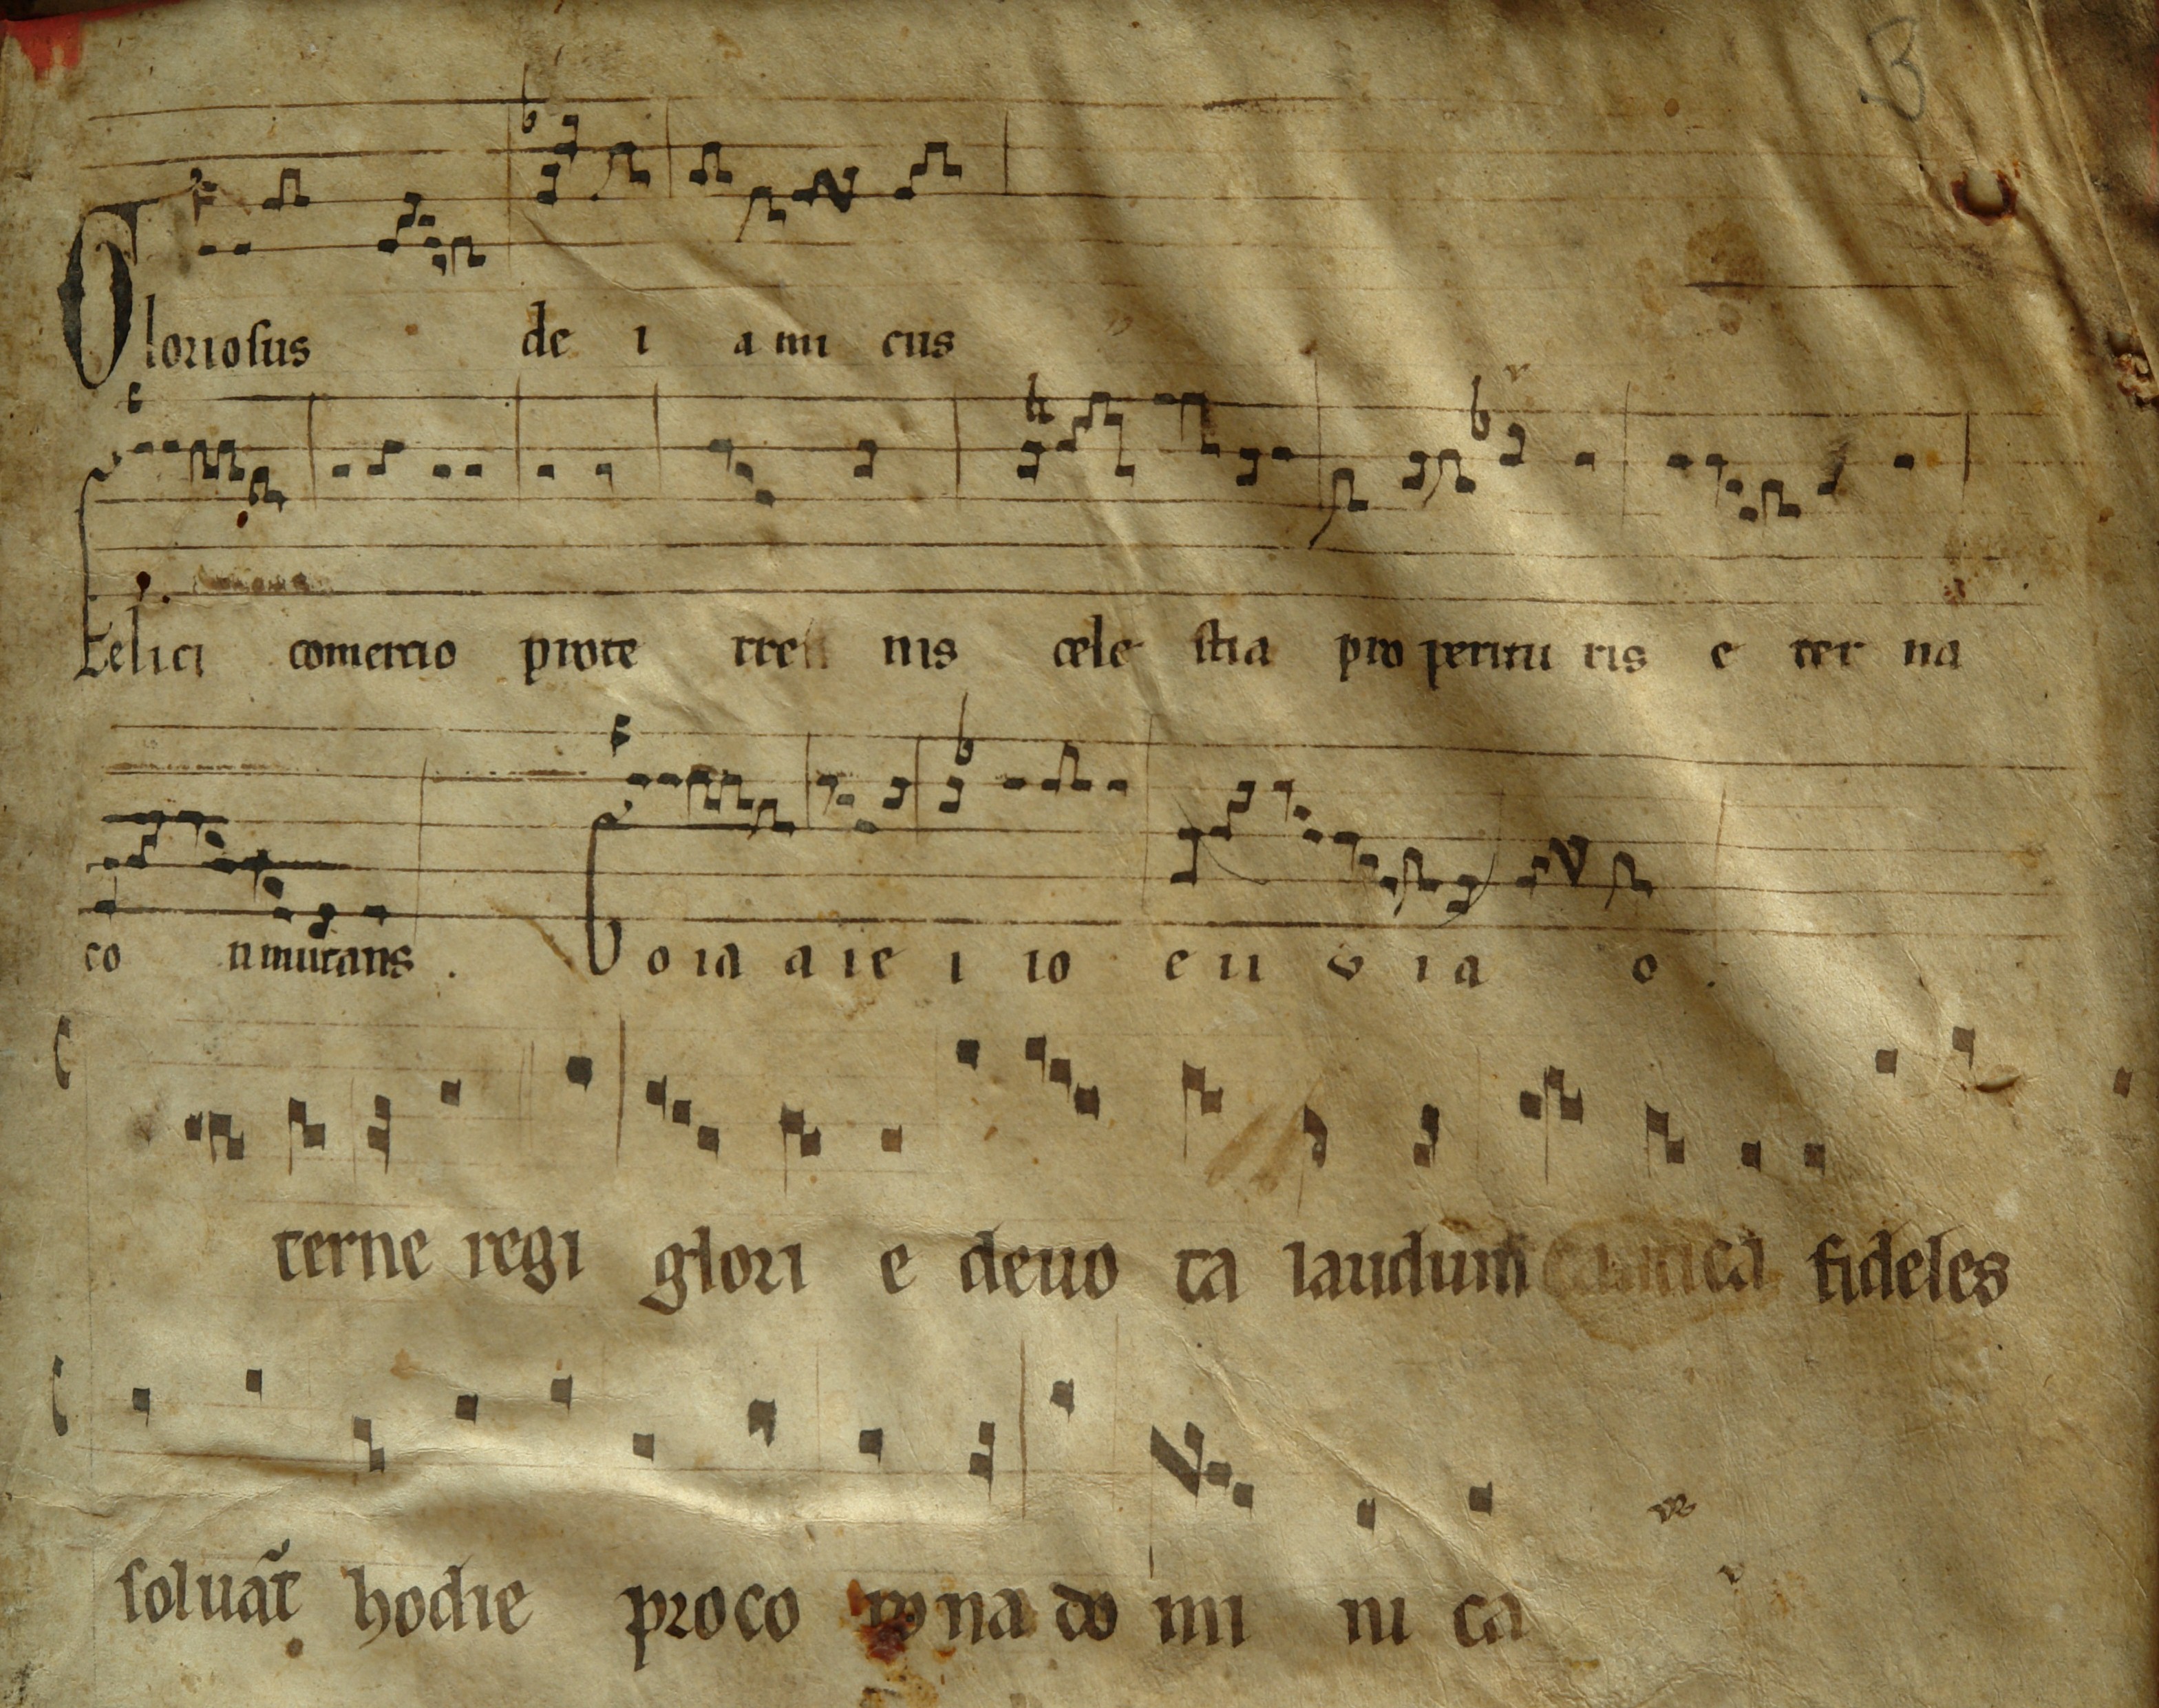 3
Gloriosus de i a mi cus
Felici comercio prote rre nis cele stia pro peritu ris e ter na
co nmutans . G o ia a ie i io e u o i a o .
terne regi glori e deuo ta laudum cantica fideles
soluat̃ hodie pro co ro na do mi ni ca